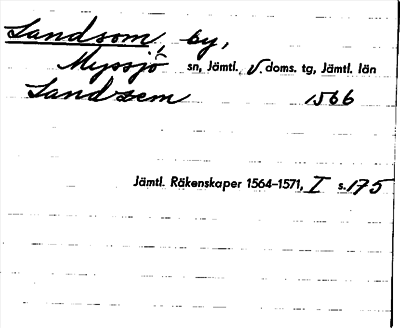 Landsom, by,
Myssjö sn, Jämtl. V. doms. tg, Jämtl. län
Landzem 1566
Jämtl. Räkenskaper 1564–1571, I s. 175